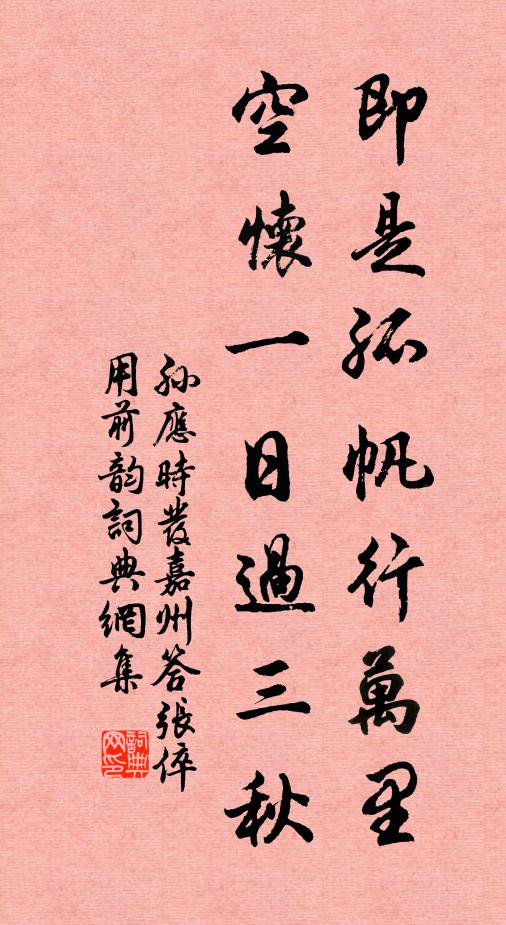 即是孤帆行萬里
空懷一日過三秋
孫應時發嘉州答張倅
用前韵詞典網集
詞典
网印